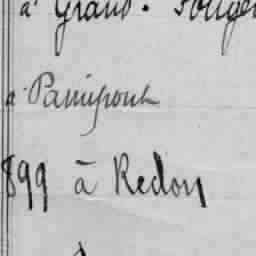 à Grand-Fouger
à Paimpont
899 à Redon